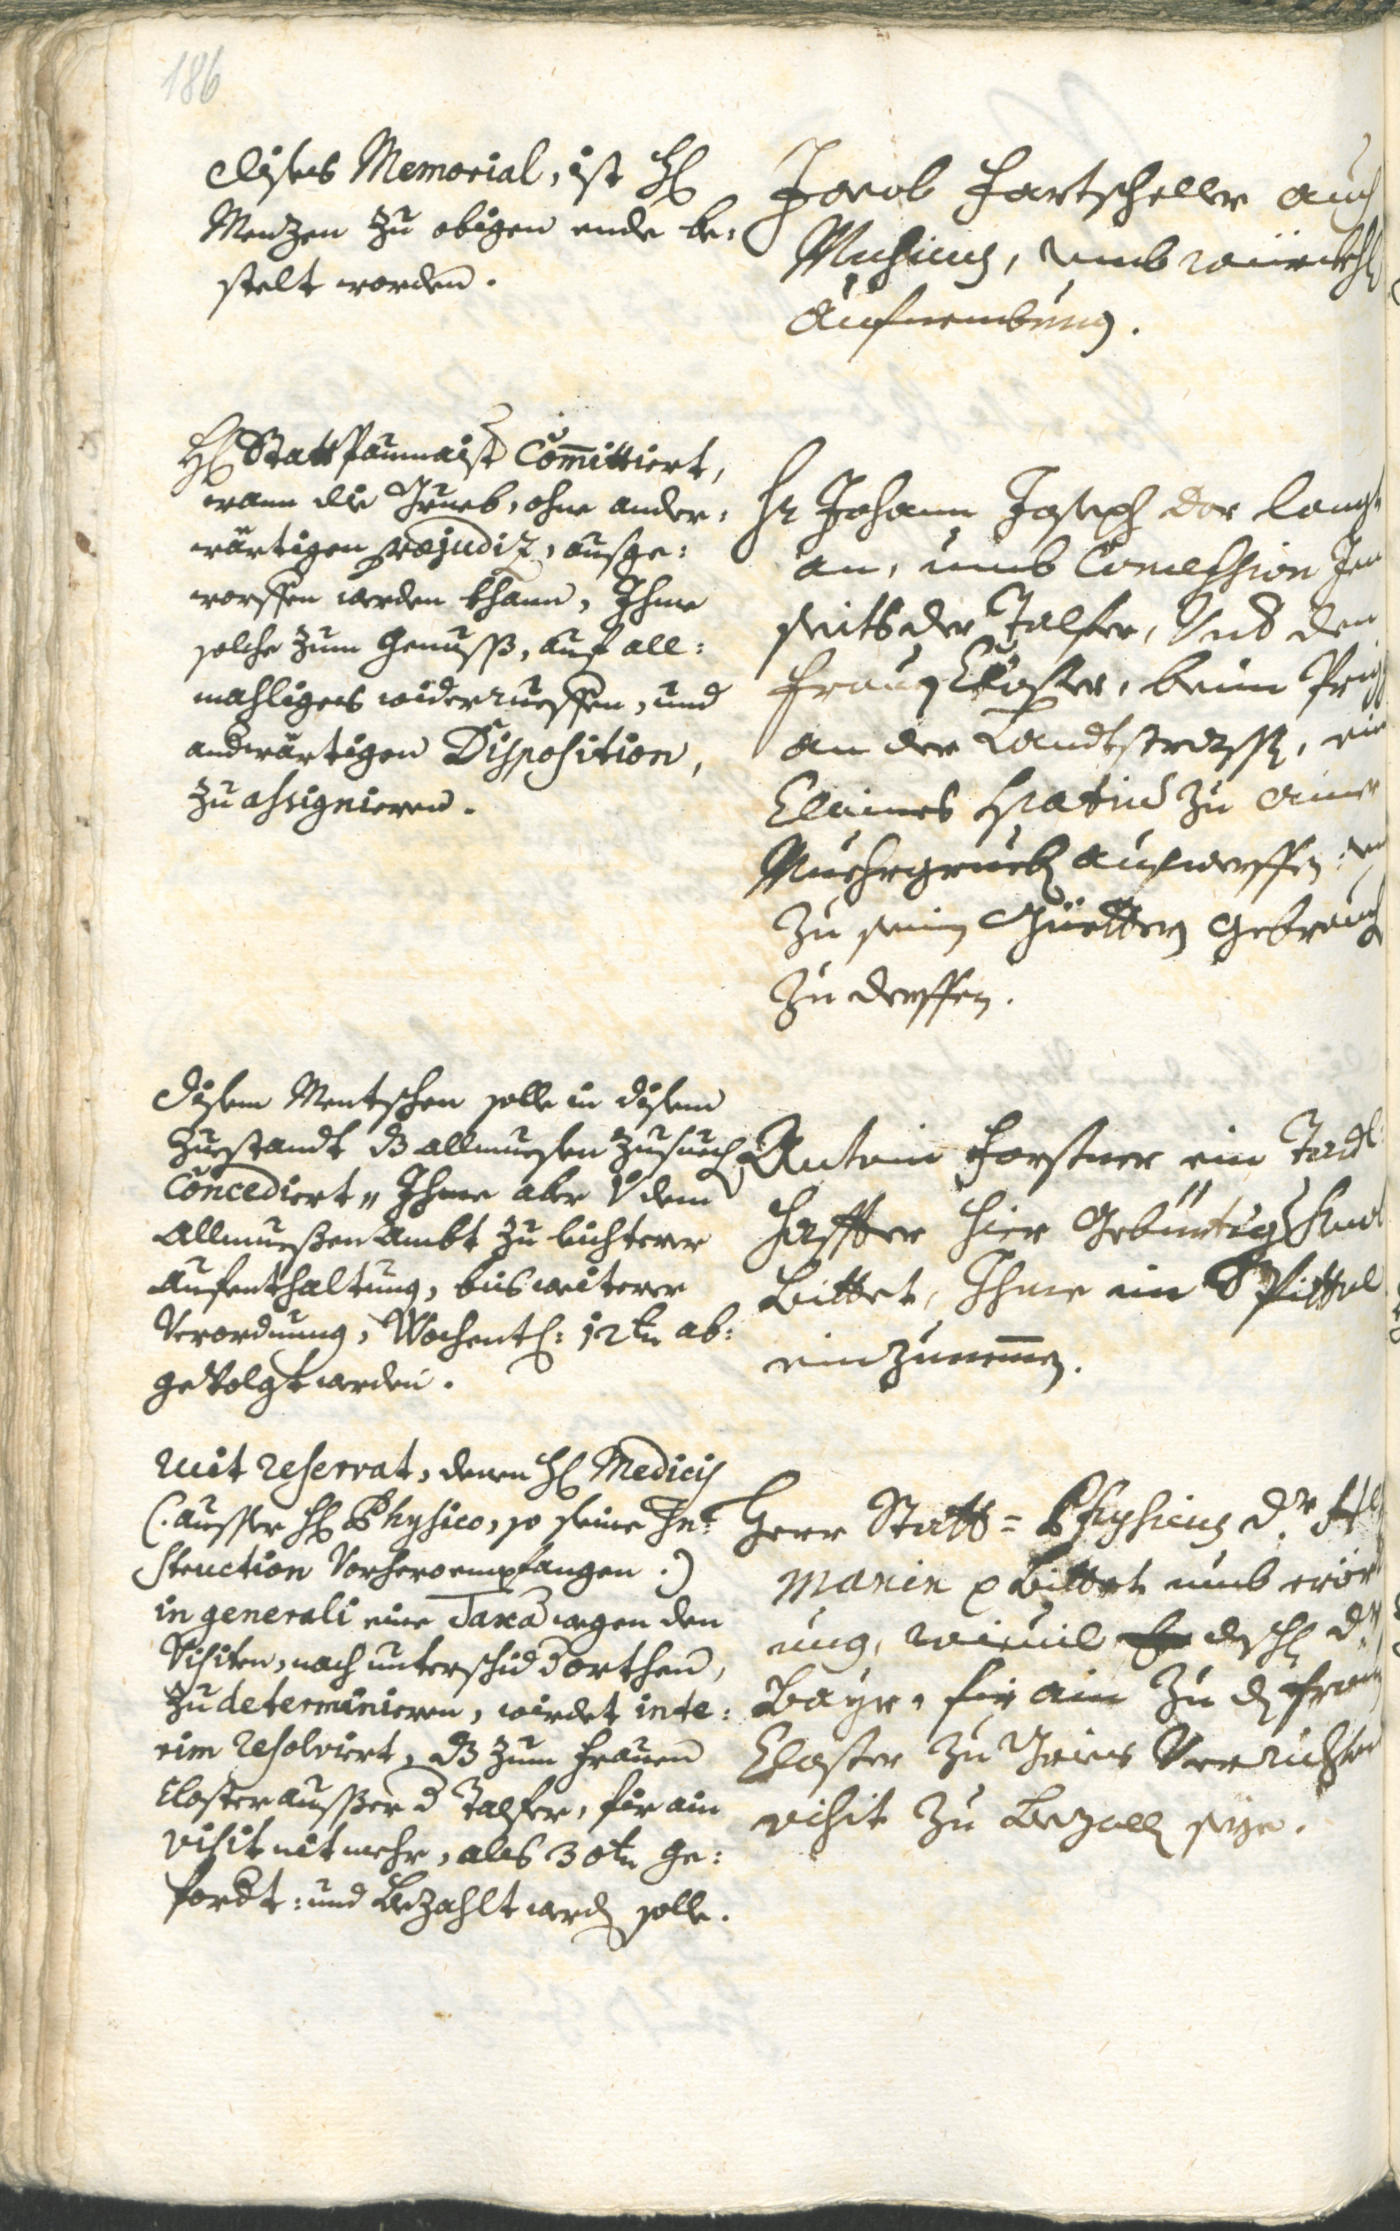 186
dises Memorial, ist H
Menzen zu obigen ende be:
stelt worden.
Jacob Fartscheller auch
Musicus, umb würckhl
Aufnembung.
H Statt Paumaist Committiert,
wann die Grueb, ohne ander:
wärtigen præjudiz, ausge:
worffen werden khann, Ihme
solche zum Genuss, auf all:
mahliges widerrueffen, und
andwärtigen Disposition,
zu assignieren.
Hr Johann Joseph
an, umb Concession Jen
seits der Talfer, Und den
Frauen Closter, beim
an der Landtstrassen, ein
Claines spatium zu ainer
Muehrgrueb aufwerffen:
zu sein Güettern Gebrauch
zu derffen.
disem Mentschen solle in disem
Zuestandt dz allmuesen zusuech
Concediert„ Ihme aber V dem
Allmuesen Ambt zu leichterer
Aufenthaltung, bis weiterer
Verordnung, Wochentl: 12 kr ab:
gevolgt werden.
Antoni Forstner ein Tadl
haffter hier Gebürtig
Bittet, Ihme im Spittal
einzunemen.
mit reservat, denen H Medicis
(: ausser H Physico, so seine In:
struction Vorhero empfangen :)
in generali eine Taxa wegen den
Visiten, nach unterschid d orthen,
zu determinieren, wirdet inte:
rim resolviert, dz zum Frauen
Closter ausser d Talfer, für ain
visit nit mehr, als 30 kr ge:
fordt: und Bezahlt werden solle.
Herr Statt = Physicus Dr.
manin p Bittet umb erör
ung, wieuil H Dr
Bayr. für ain zu dem Frauen
Closter zu Gries Verrichte
visit zu Bezallen seye.